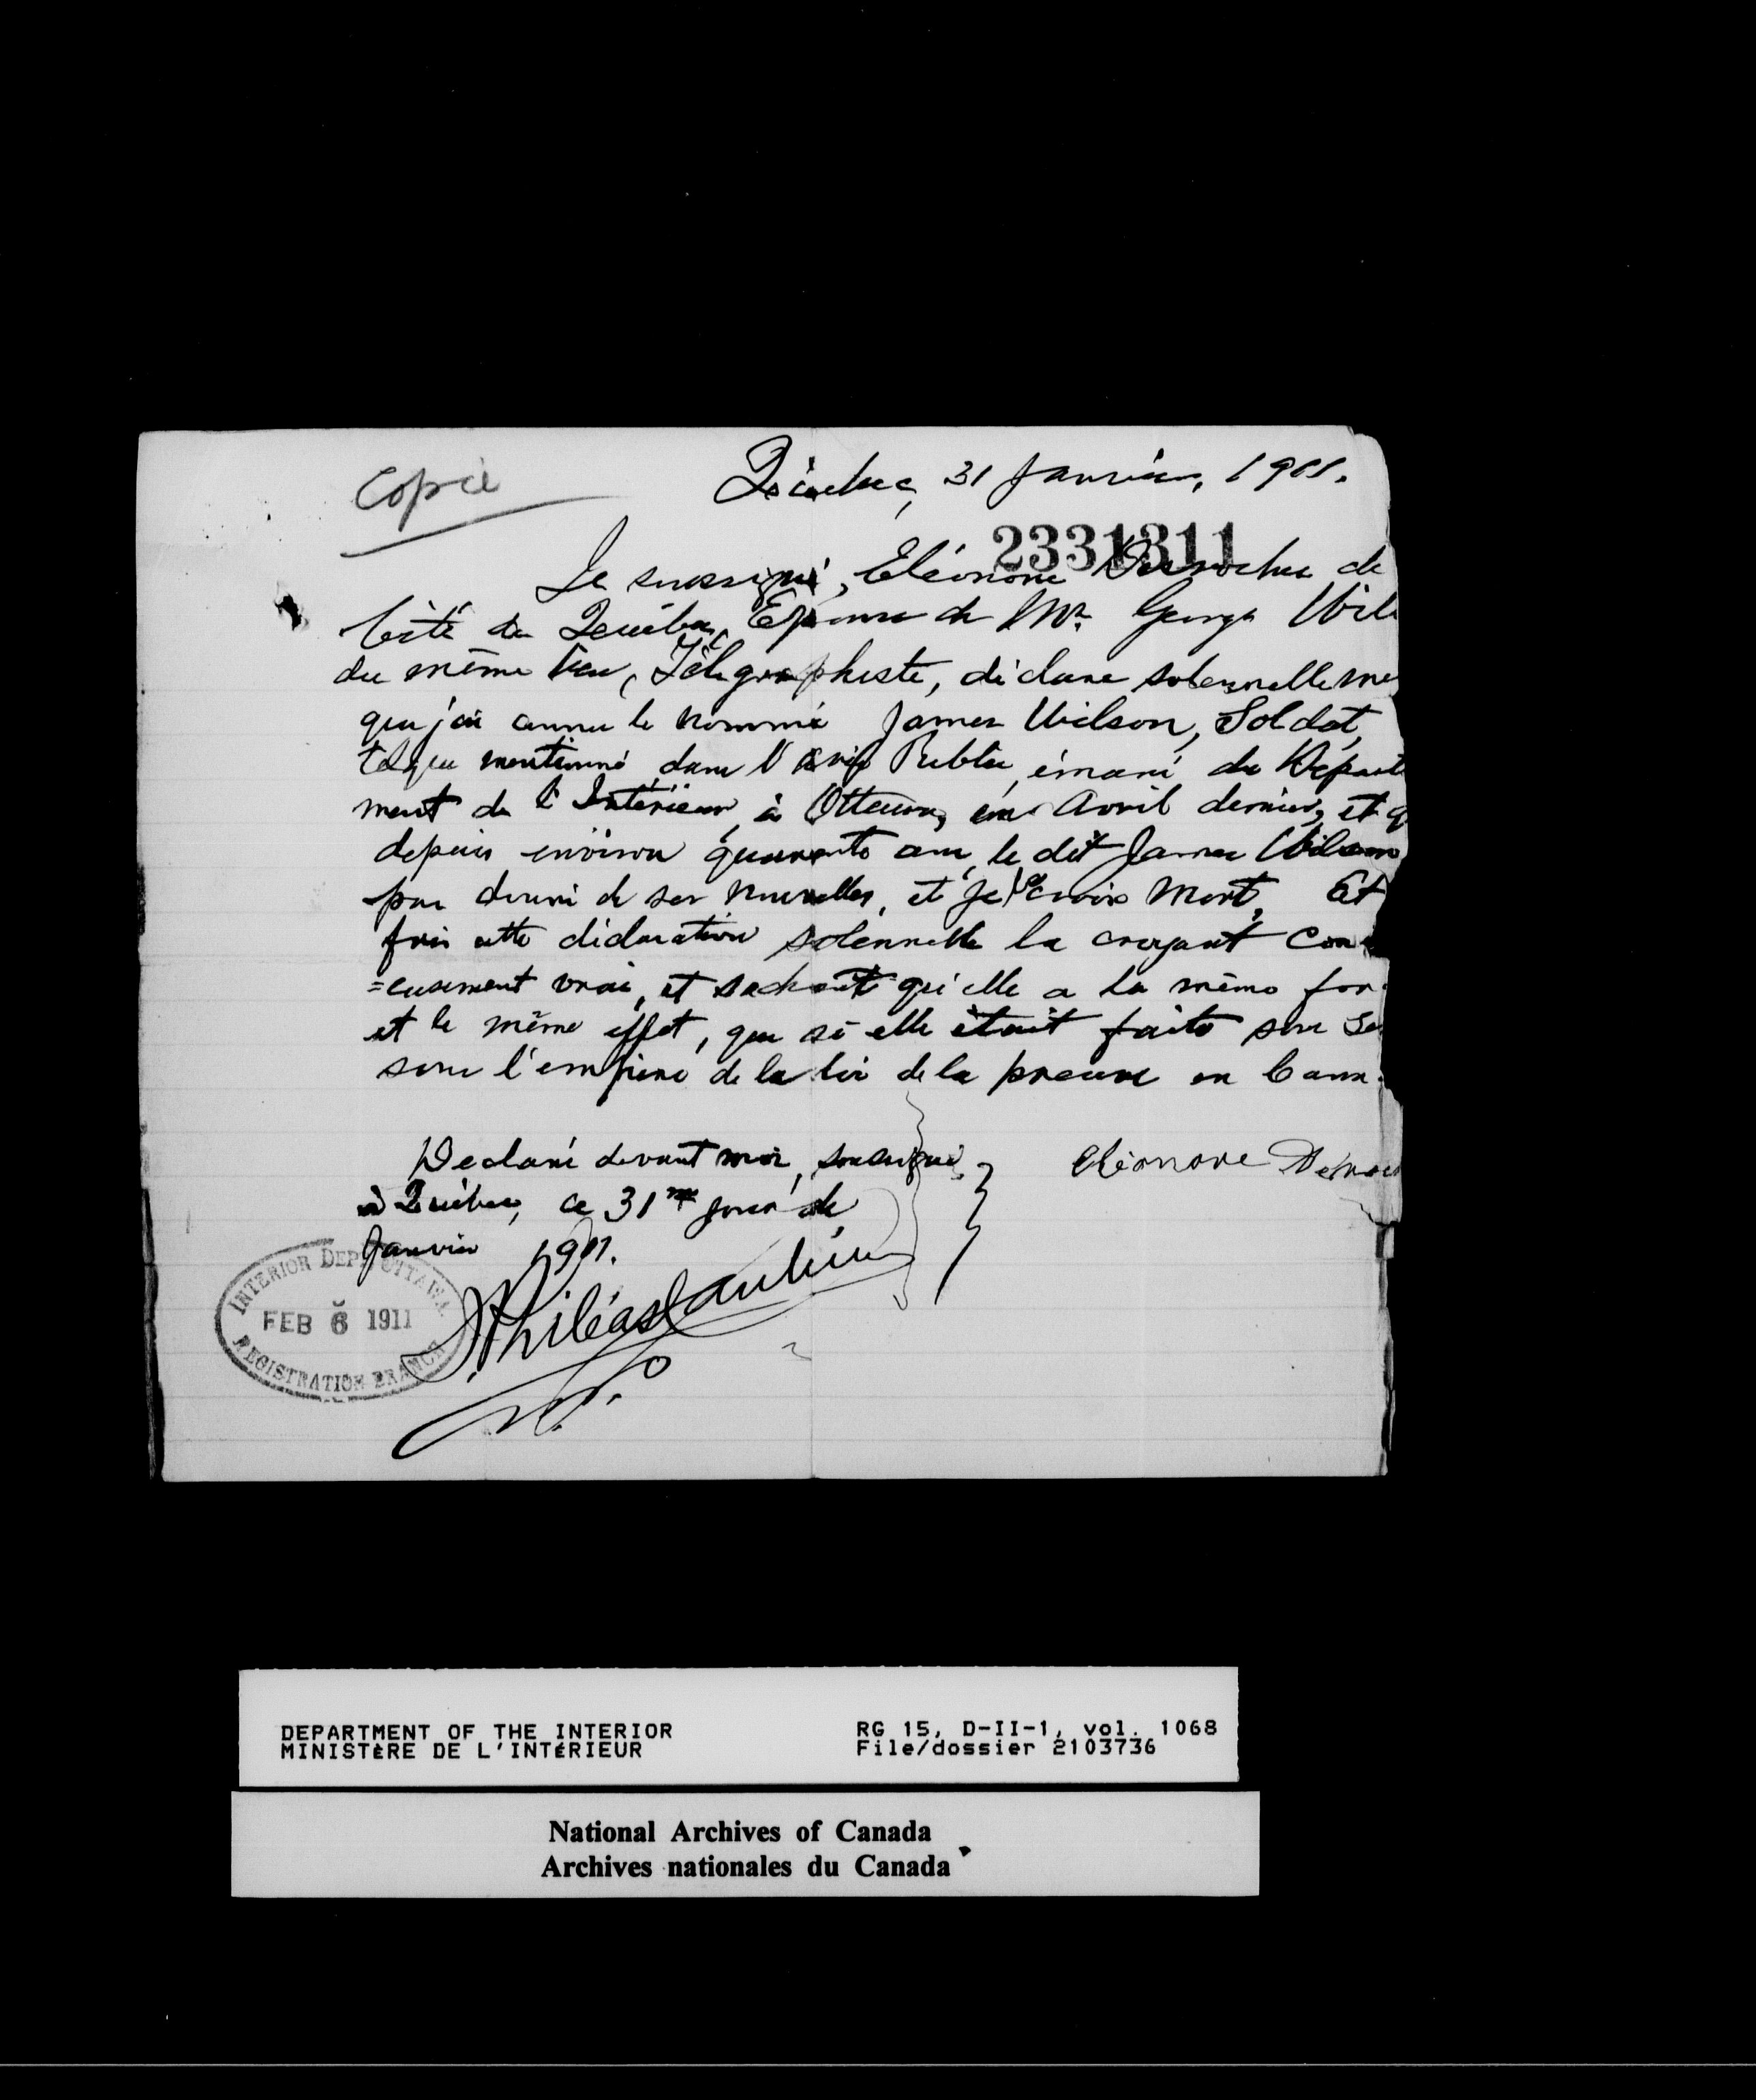 Copie
Québec, 31 Janvier, 1911.
2331311
Je soussigné, Eléonore Desroches de
Cité de Québec, Epouse de Mr. George Wil
du même lieu, Télégraphiste, déclare solennelleme
que j'ai connu le nommé James Wilson, Soldat,
tel que mentionné dans l'Avis Public émané du Départe
ment de l'Intérieur, à Ottawa, en Avril dernier, et q
depuis environ quarante ans, le dit James Wilson
pas donné de ses nouvelles, et je le crois Mort, Et
fais cette déclaration solennelle la croyant Con
=cieusement vraie, et sachant qu'elle a la même for
et le même effet, que si elle était faite sous Se
sous l'empire de la loi de la preuve en Cana
Declaré devant moi, soussigné
à Québec, ce 31me jour de
Janvier 1911.
Eléonore Desroc
INTERIOR DEPT OTTAWA
FEB 6 1911
REGISTRATION BRANCH
DEPARTMENT OF THE INTERIOR
MINISTÈRE DE L'INTÉRIEUR
RG 15, D-II-1, vol. 1068
File/dossier 2103736
National Archives of Canada
Archives nationales du Canada